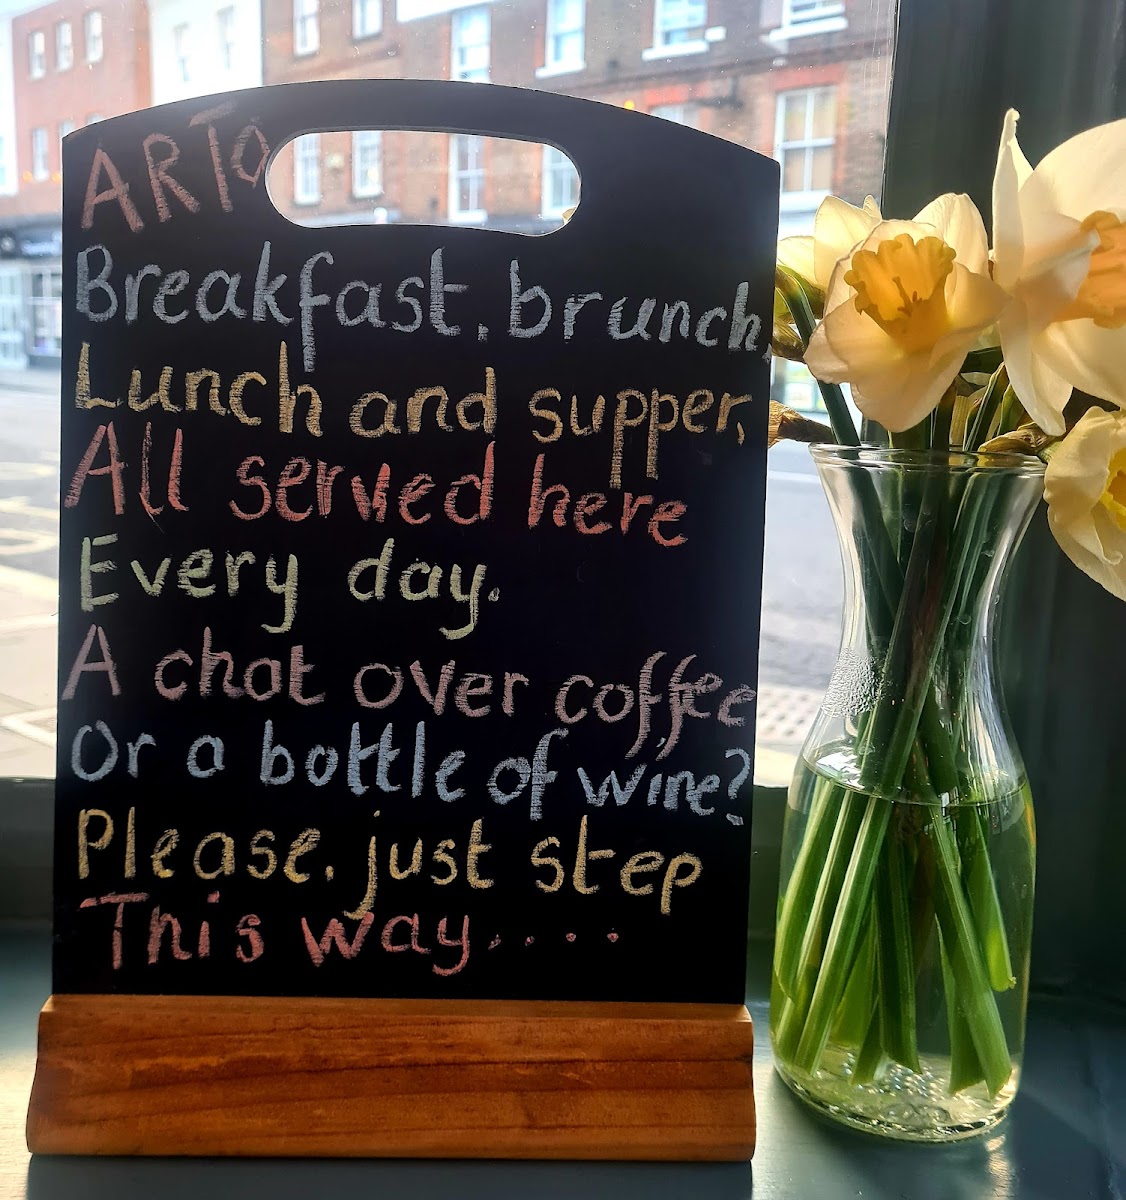 ARTO
Breakfast, brunch,
Lunch and supper,
All served here
Every day.
A chat over coffee
Or a bottle of wine?
Please, just step
This way....